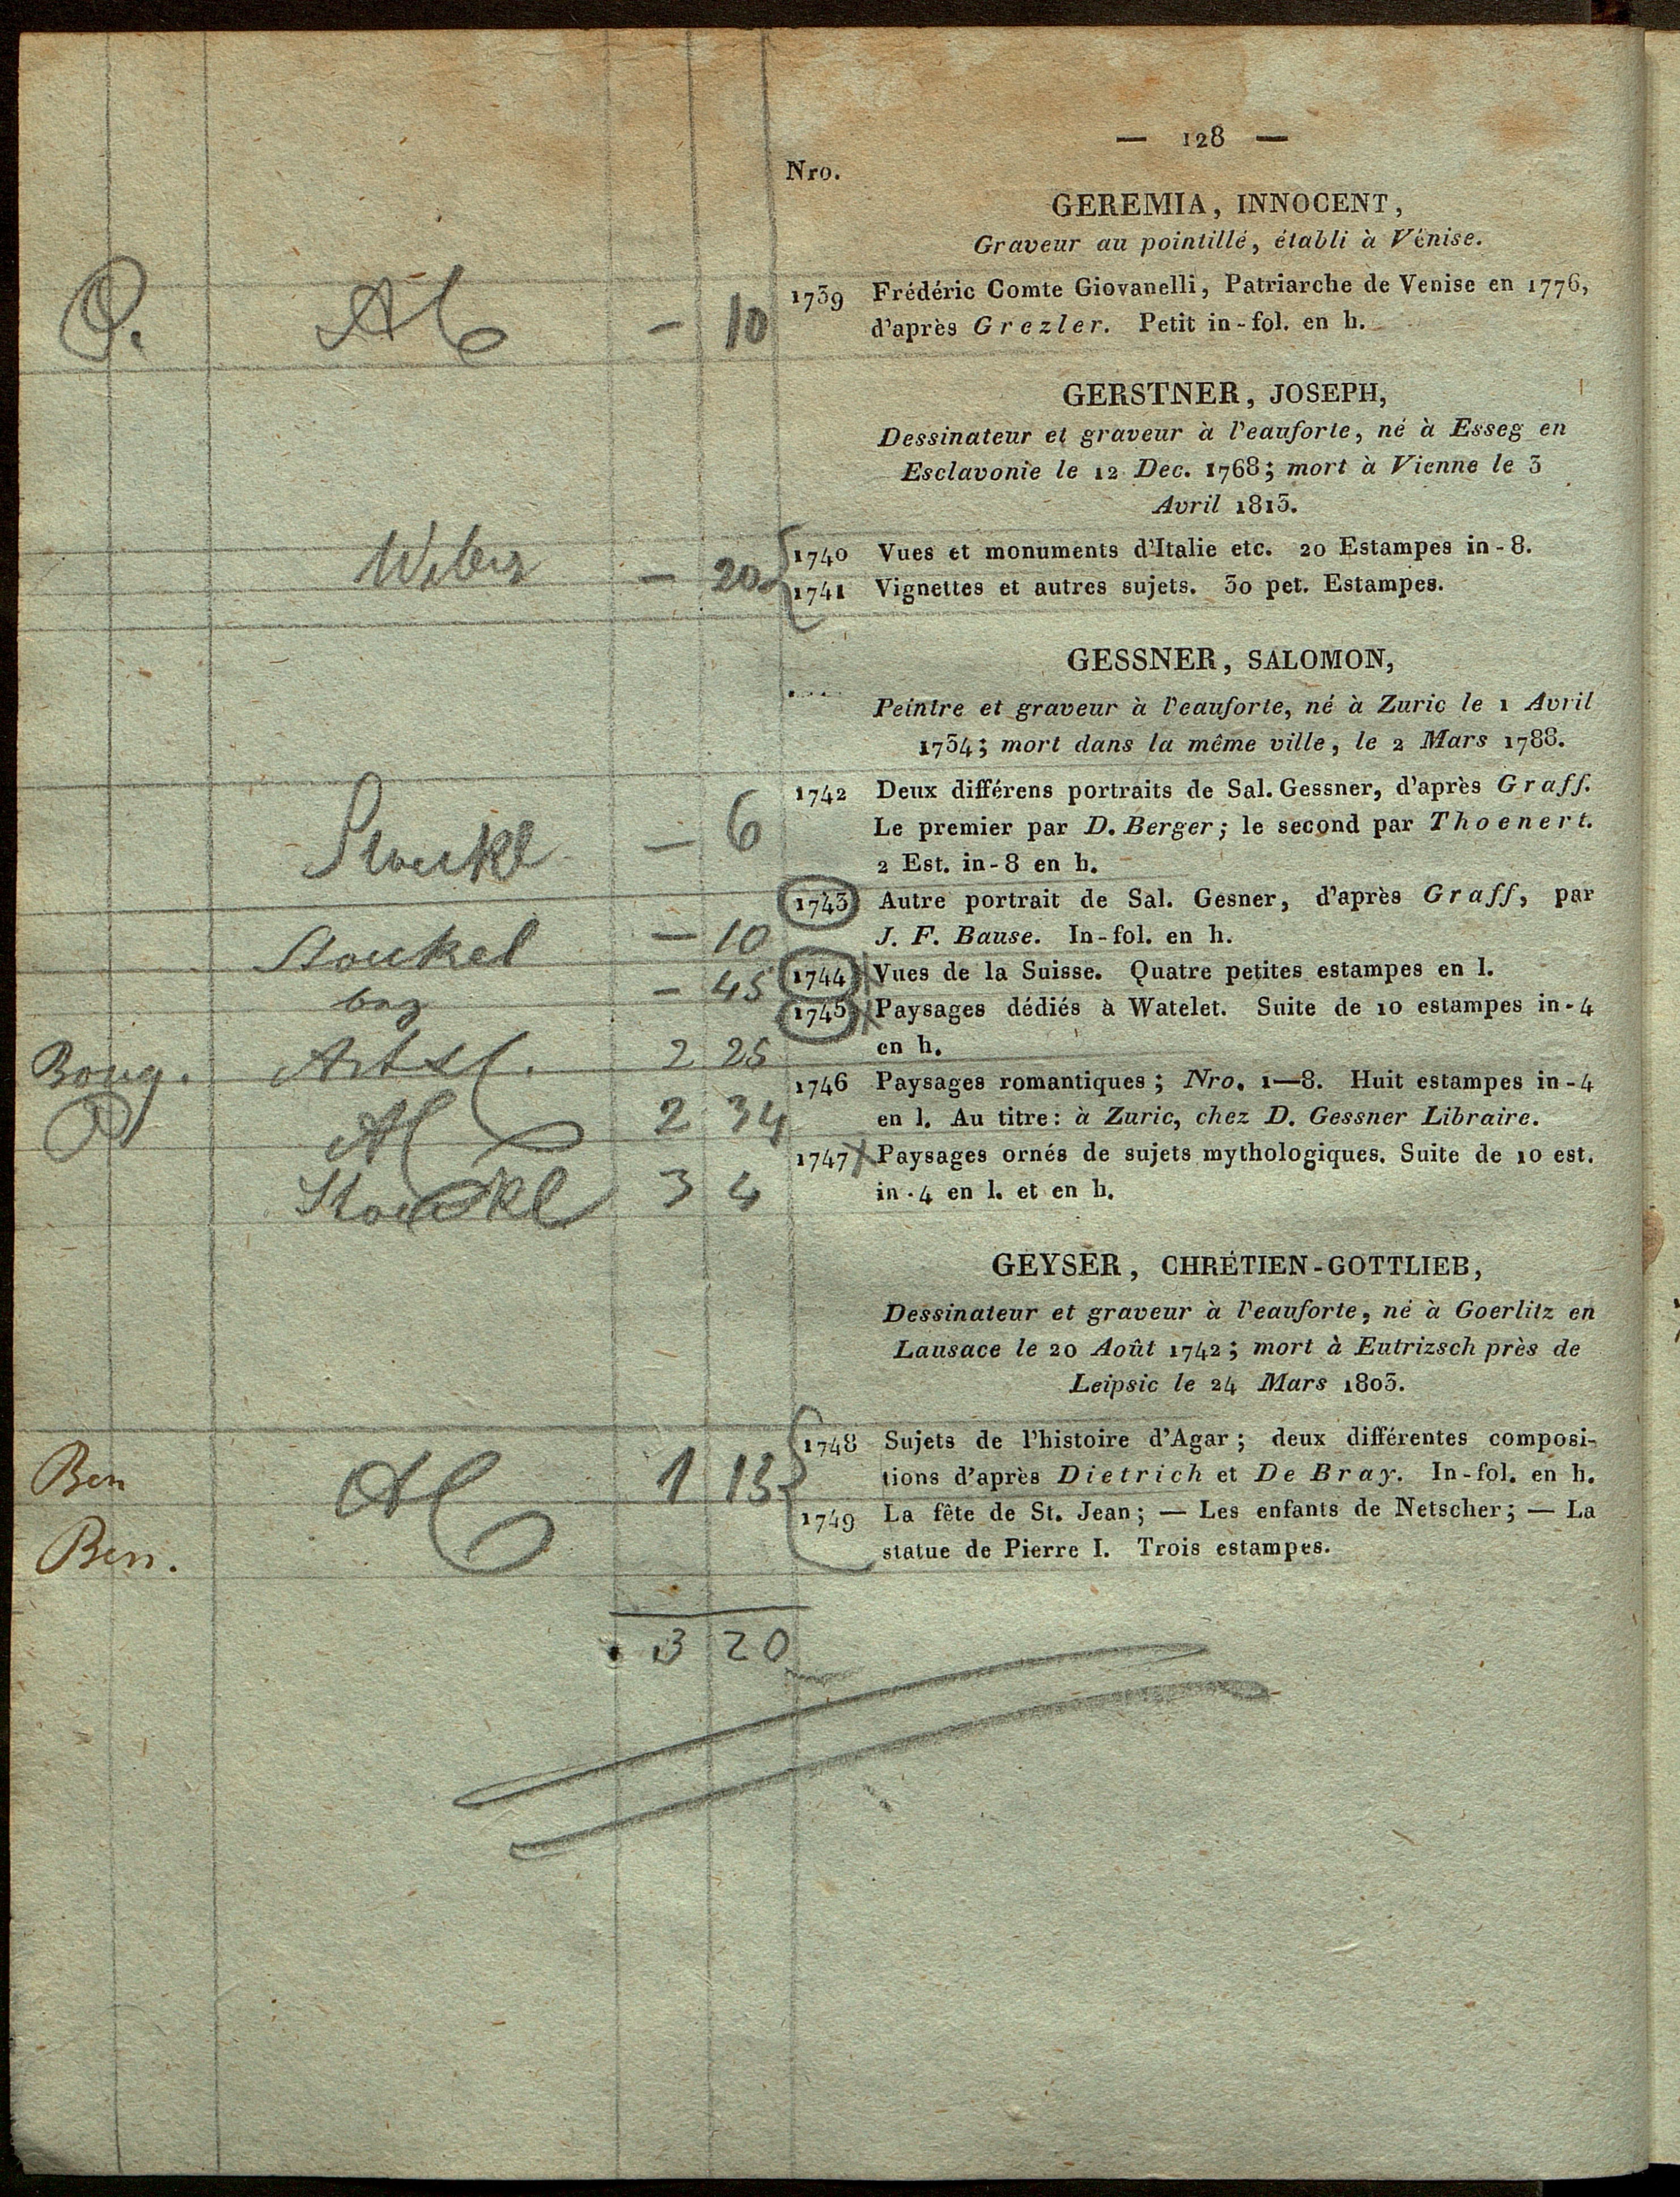 — 128 —
Nro.
GEREMIA, INNOCENT,
Graveur au pointillé, établi à Vénise.
1739 Frédéric Comte Giovanelli, Patriarche de Venise en 1776,
d'après Grezler. Petit in-fol. en h.
— 10
GERSTNER, JOSEPH,
Dessinateur et graveur à l'eauforte, né à Esseg en
Esclavonie le 12 Dec. 1768; mort à Vienne le 3
Avril 1813.
1740 Vues et monuments d'Italie etc. 20 Estampes in-8.
Weber — 20
1741 Vignettes et autres sujets. 30 pet. Estampes.
GESSNER, SALOMON,
Peintre et graveur à l'eauforte, né à Zuric le 1 Avril
1734; mort dans la même ville, le 2 Mars 1788.
1742 Deux différens portraits de Sal. Gessner, d'après Graff.
Stoukl — 6
Le premier par D. Berger; le second par Thoenert.
2 Est. in-8 en h.
1743 Autre portrait de Sal. Gesner, d'après Graff, par
Stoukel — 10
J. F. Bause. In-fol. en h.
— 45
1744 Vues de la Suisse. Quatre petites estampes en l.
1745 Paysages dédiés à Watelet. Suite de 10 estampes in-4
en h.
Boug. 2 25
1746 Paysages romantiques; Nro. 1—8. Huit estampes in-4
en l. Au titre: à Zuric, chez D. Gessner Libraire.
2 34
1747 Paysages ornés de sujets mythologiques. Suite de 10 est.
in-4 en l. et en h.
Stoukl 3 4
GEYSER, CHRÉTIEN-GOTTLIEB,
Dessinateur et graveur à l'eauforte, né à Goerlitz en
Lausace le 20 Août 1742; mort à Eutrizsch près de
Leipsic le 24 Mars 1803.
1748 Sujets de l'histoire d'Agar; deux différentes composi-
tions d'après Dietrich et De Bray. In-fol. en h.
Ben 1 13
1749 La fête de St. Jean; — Les enfants de Netscher; — La
statue de Pierre I. Trois estampes.
Ben.
3 20